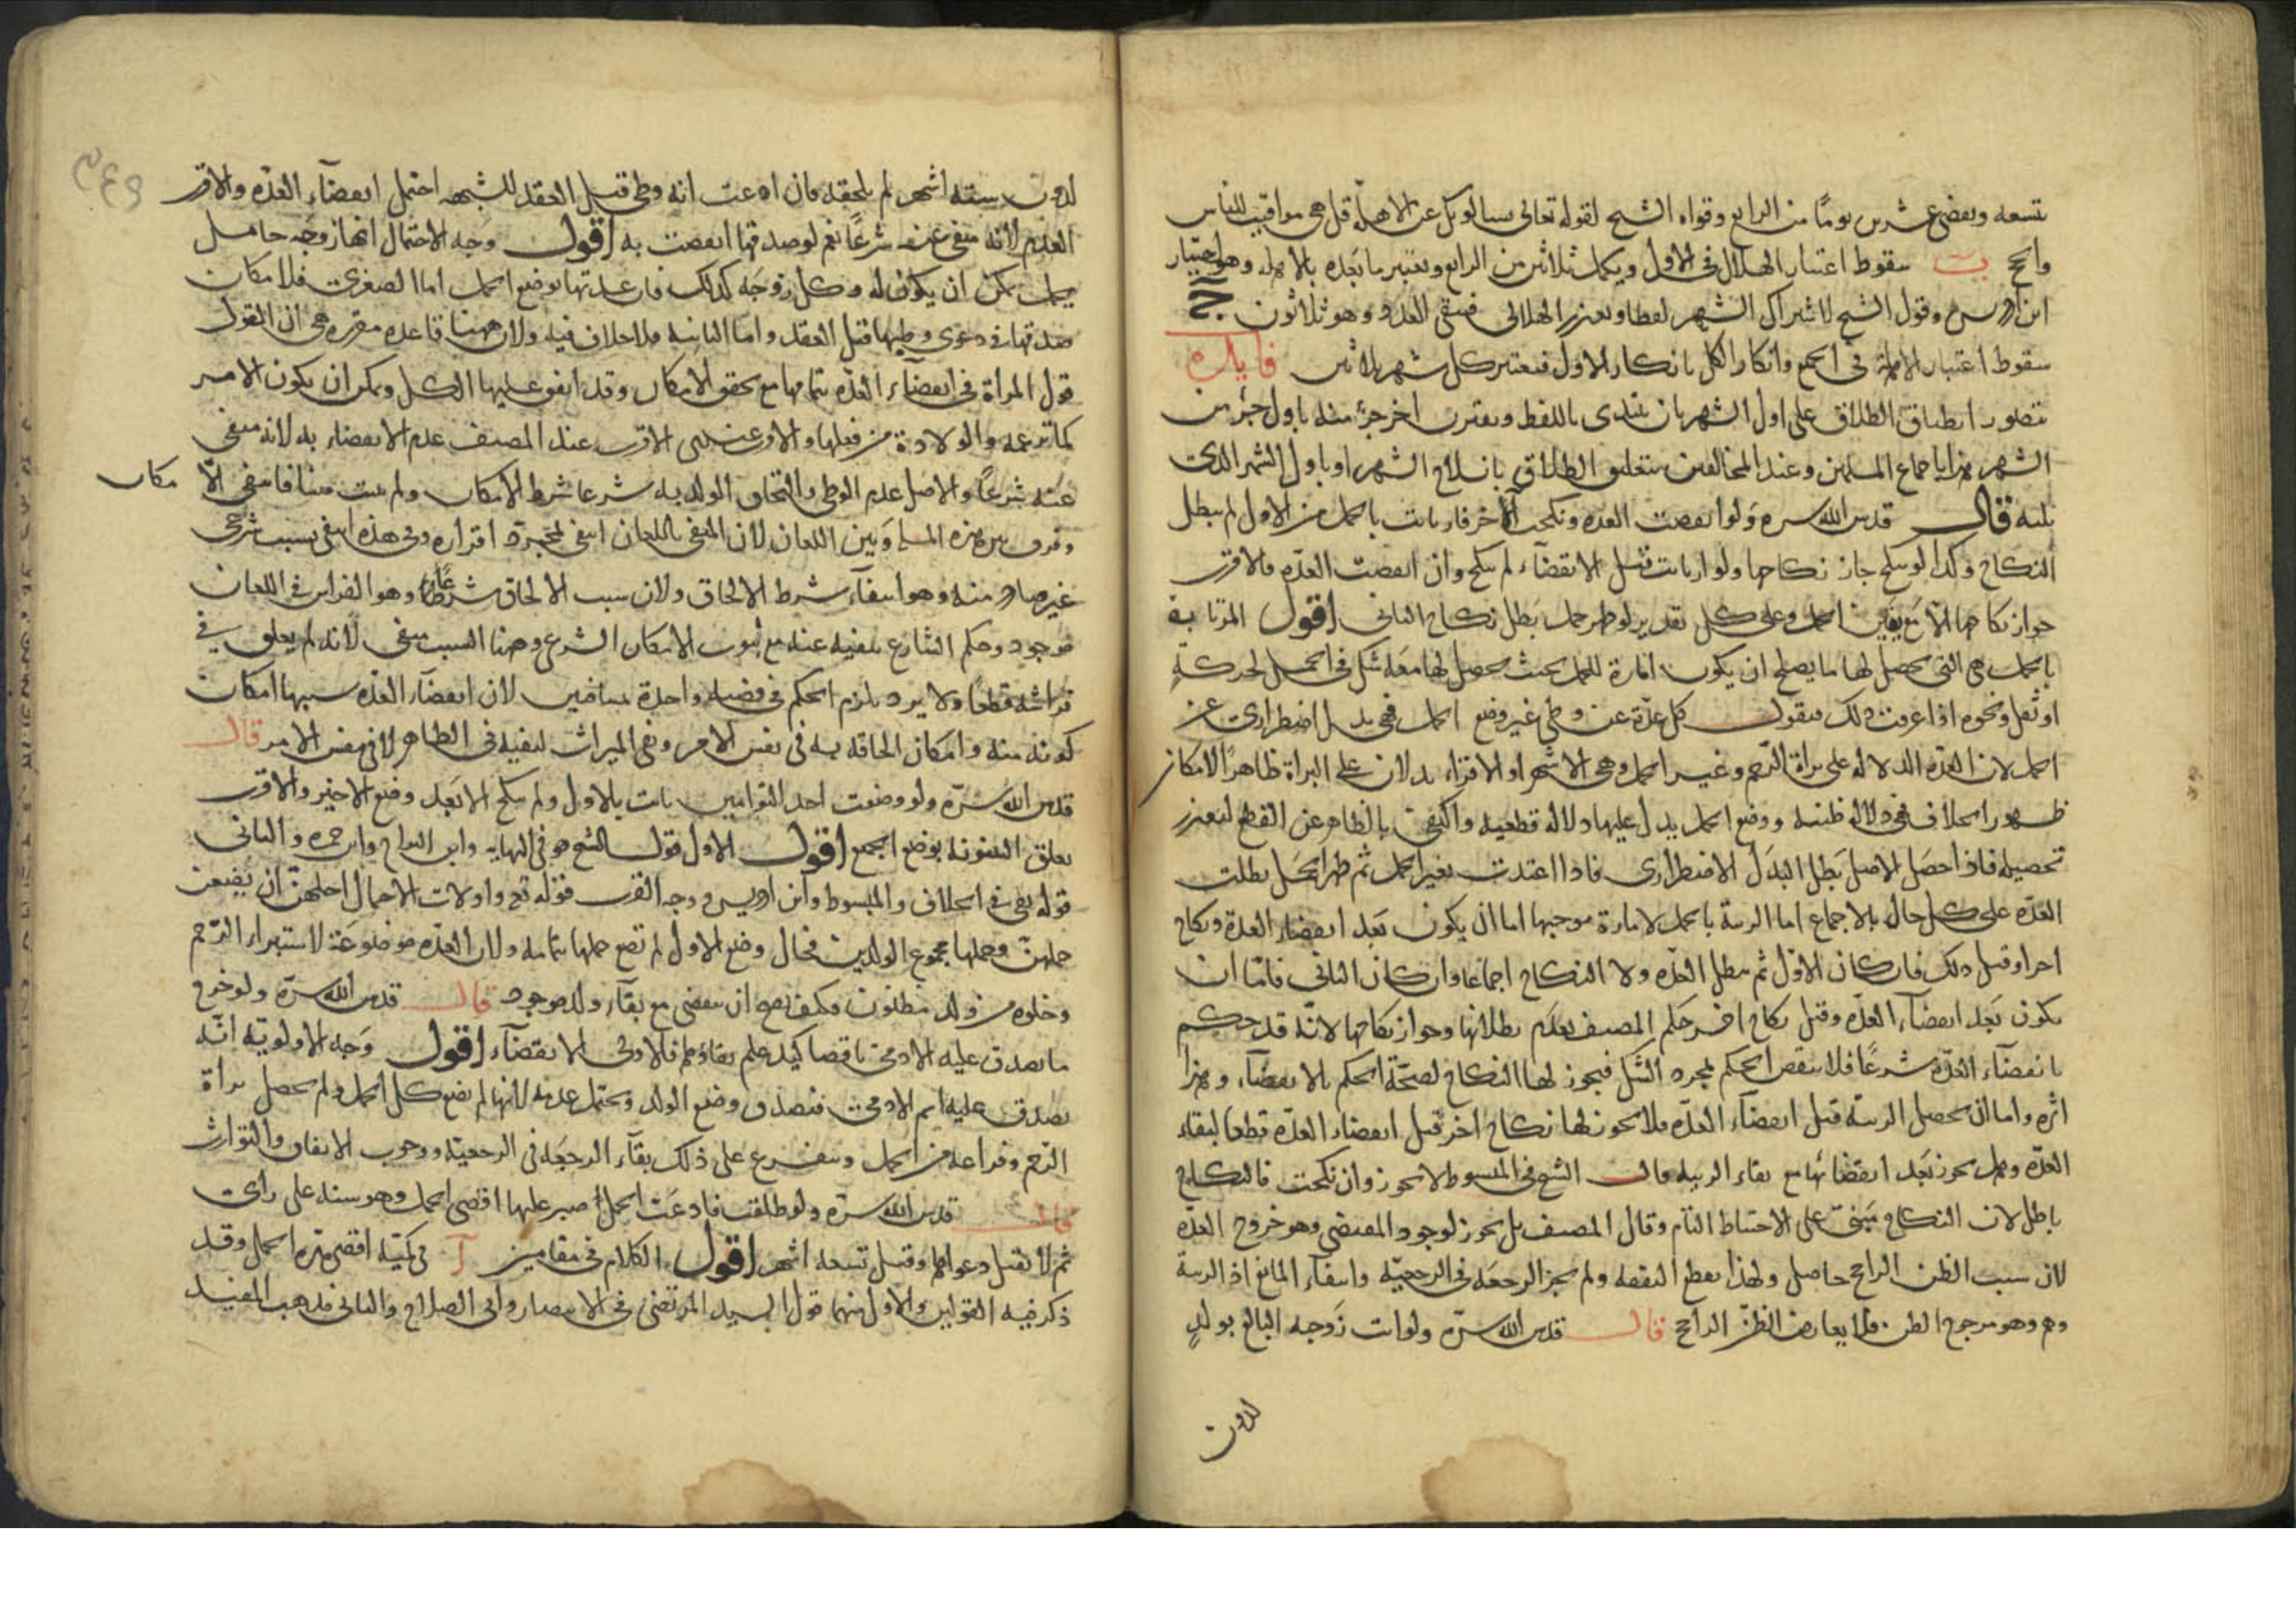 تسعة ويقضى عشرين يوما من الرابع وقواه الشيخ لقوله تعالى يسالونك عن الاهلة قل هي مواقيت للناس
والحج ب سقوط اعتبار الهلال في الاول ويكمل ثلاثين من الرابع ويعتبر ما بعده بالاهلة وهو اختيار
ابن ادريس وقول الشيخ لاشتراك الشهر لفظا وتعذر الهلالي فيبقى العدد وهو ثلاثون ج
سقوط اعتبار الاهلة في الجميع وانكار الكل بانكار الاول فيعتبر كل شهر ثلاثين فايدة
يتصور انطباق الطلاق على اول الشهر بان يبتدى باللفظ ويقترن اخر جزء منه باول جزء من
الشهر هذا باجماع المسلمين وعند المخالفين يتعليق الطلاق بانسلاخ الشهر او باول الشهر الذي
يليه قال قدس الله سره ولو انقضت العدة ونكحت اخر فارتابت بالحمل من الاول لم يبطل
النكاح وكذا لو لم ينكح جاز نكاحها ولو ارتابت قبل الانقضاء لم ينكح وان انقضت العدة فالاقرب
جواز نكاحها الا مع يقين الحمل وعلى كل تقدير لو ظهر حمل بطل نكاح الثاني اقول المرتابة
بالحمل هي التي يحصل لها ما يصلح ان يكون امارة للحمل بحيث يحصل لها معه شك في الحمل لحركة
او ثقل ونحوه اذا عرفت ذلك فنقول كل عدة عن وطي غير وضع الحمل فهي بدل اضطراري عن
الحمل لان العدة للدلالة على براة الرحم وغير الحمل وهي الاشهر او الاقراء يدلان على البراة ظاهرا لامكان
ظهور الخلاف فهي دلالة ظنية ووضع الحمل يدل عليها دلالة قطعية واكتفي بالظاهر عن القطع لتعذر
تحصيله فاذا حصل الاصل بطل البدل الاضطراري فاذا اعتدت بغير الحمل ثم ظهر الحمل بطلت
العدة على كل حال بالاجماع اما الريبة بالحمل لامارة موجبها اما ان يكون بعد انقضاء العدة ونكاح
اخر او قبل ذلك فان كان الاول لم تبطل العدة ولا النكاح اجماعا وان كان الثاني فاما ان
يكون بعد انقضاء العدة وقبل نكاح اخر حكم المصنف بعدم بطلانها وجواز نكاحها لانه قد حكم
بانقضاء العدة شرعا فلا ينقض الحكم لمجرد الشك فيجوز لها النكاح لصحة الحكم بالانقضاء وهذا
اثره واما ان يحصل الريبة قبل انقضاء العدة فلا يجوز لها نكاح اخر قبل انقضاء العدة قطعا لبقاء
العدة وهل يجوز بعد انقضائها مع بقاء الريبة قال الشيخ في المبسوط لا يجوز وان نكحت فالنكاح
باطل لان النكاح مبني على الاحتياط التام وقال المصنف بل يجوز لوجود المقتضي وهو خروج العدة
لان سبب الظن الراجح حاصل ولهذا تقطع النفقة ولم يجز الرجعة في الرجعية وانتفاء المانع اذ الريبة
وهم وهو مرجوح الظن فلا يعارض الظن الراجح قال قدس الله سره ولو اتت زوجة البالغ بولد
لدون
لدون ستة اشهر لم يلحقه فان ادعت انه وطى قبل العقد للشبهة احتمل انقضاء العدة والاقرب
العدم لانه منفي عنه شرعا نعم لو صدقها انقضت به اقول وجه الاحتمال انها زوجة حامل
بحمل يمكن ان يكون له وكل زوجة كذلك فان عدتها بوضع الحمل اما الصغرى فلامكان
صدقها في دعوى وطيها قبل العقد واما الثانية فلا خلاف فيه ولان هنا قاعدة مقررة هي ان القول
قول المراة في انقضاء العدة بتمامها مع تحقق الامكان وقد اتفق عليها الكل ويمكن ان يكون الامر
كما تزعمه والولادة من فعلها والاقرب عند المصنف عدم الانقضاء به لانه منفي
عنه شرعا والاصل عدم الوطي والتحاق الولد به شرعا شرط الامكان ولم يثبت هنا فانتفى الامكان
وفرق بين هذه المسئلة وبين اللعان لان المنفي باللعان انتفى لمجرد اقراره وفي هذه انتفى بسبب شرعي
غير صادر منه وهو انتفاء شرط الالحاق ولان سبب الالحاق شرعا وهو الفراش في اللعان
موجود وحكم الشارع بنفيه عنه مع ثبوت الامكان الشرعي وهنا السبب منفي لانه لم يعلق في
فراشه قطعا ولا يرد يلزم الحكم في قضية واحدة بمتنافيين لان انقضاء العدة سببها امكان
كونه منه وامكان الحاقه به في نفس الامر ونفى الميراث لنفيه في الظاهر لا في نفس الامر قال
قدس الله سره ولو وضعت احد التوامين بانت بالاول ولم ينكح الا بعد وضع الاخير والاقرب
تعلق البينونة بوضع الجميع اقول الاول قول الشيخ في النهاية وابن البراج وابن حمزة والثاني
قوله في الخلاف والمبسوط وابن ادريس ووجه القرب قوله تع واولات الاحمال اجلهن ان يضعن
حملهن وحملها مجموع الولدين فحال وضع الاول لم تضع حملها بتمامه ولان العدة موضوعة لاستبراء الرحم
وخلوه من ولد مظنون فكيف يصح ان تنقضي مع بقاء ولد موجود قال قدس الله سره ولو خرج
ما يصدق عليه الادمي ناقصا كيد علم بقاؤه فالاولى الانقضاء اقول وجه الاولوية انه
يصدق عليه اسم الادمي فتصدق وضع الولد ويحتمل عدمه لانها لم تضع كل الحمل ولم يحصل براة
الرحم وفراغه من الحمل ويتفرع على ذلك بقاء الرجعة في الرجعية ووجوب الانفاق والتوارث
قال قدس الله سره ولو طلقت فادعت الحمل صبر عليها اقصى الحمل وهو سنة على راى
ثم لا تقبل دعواها وقيل تسعة اشهر اقول الكلام في مقامين آ في كمية اقصى مدة الحمل وقد
ذكر فيه القولين والاول منهما قول السيد المرتضى في الانتصار وابي الصلاح والثاني مذهب المفيد